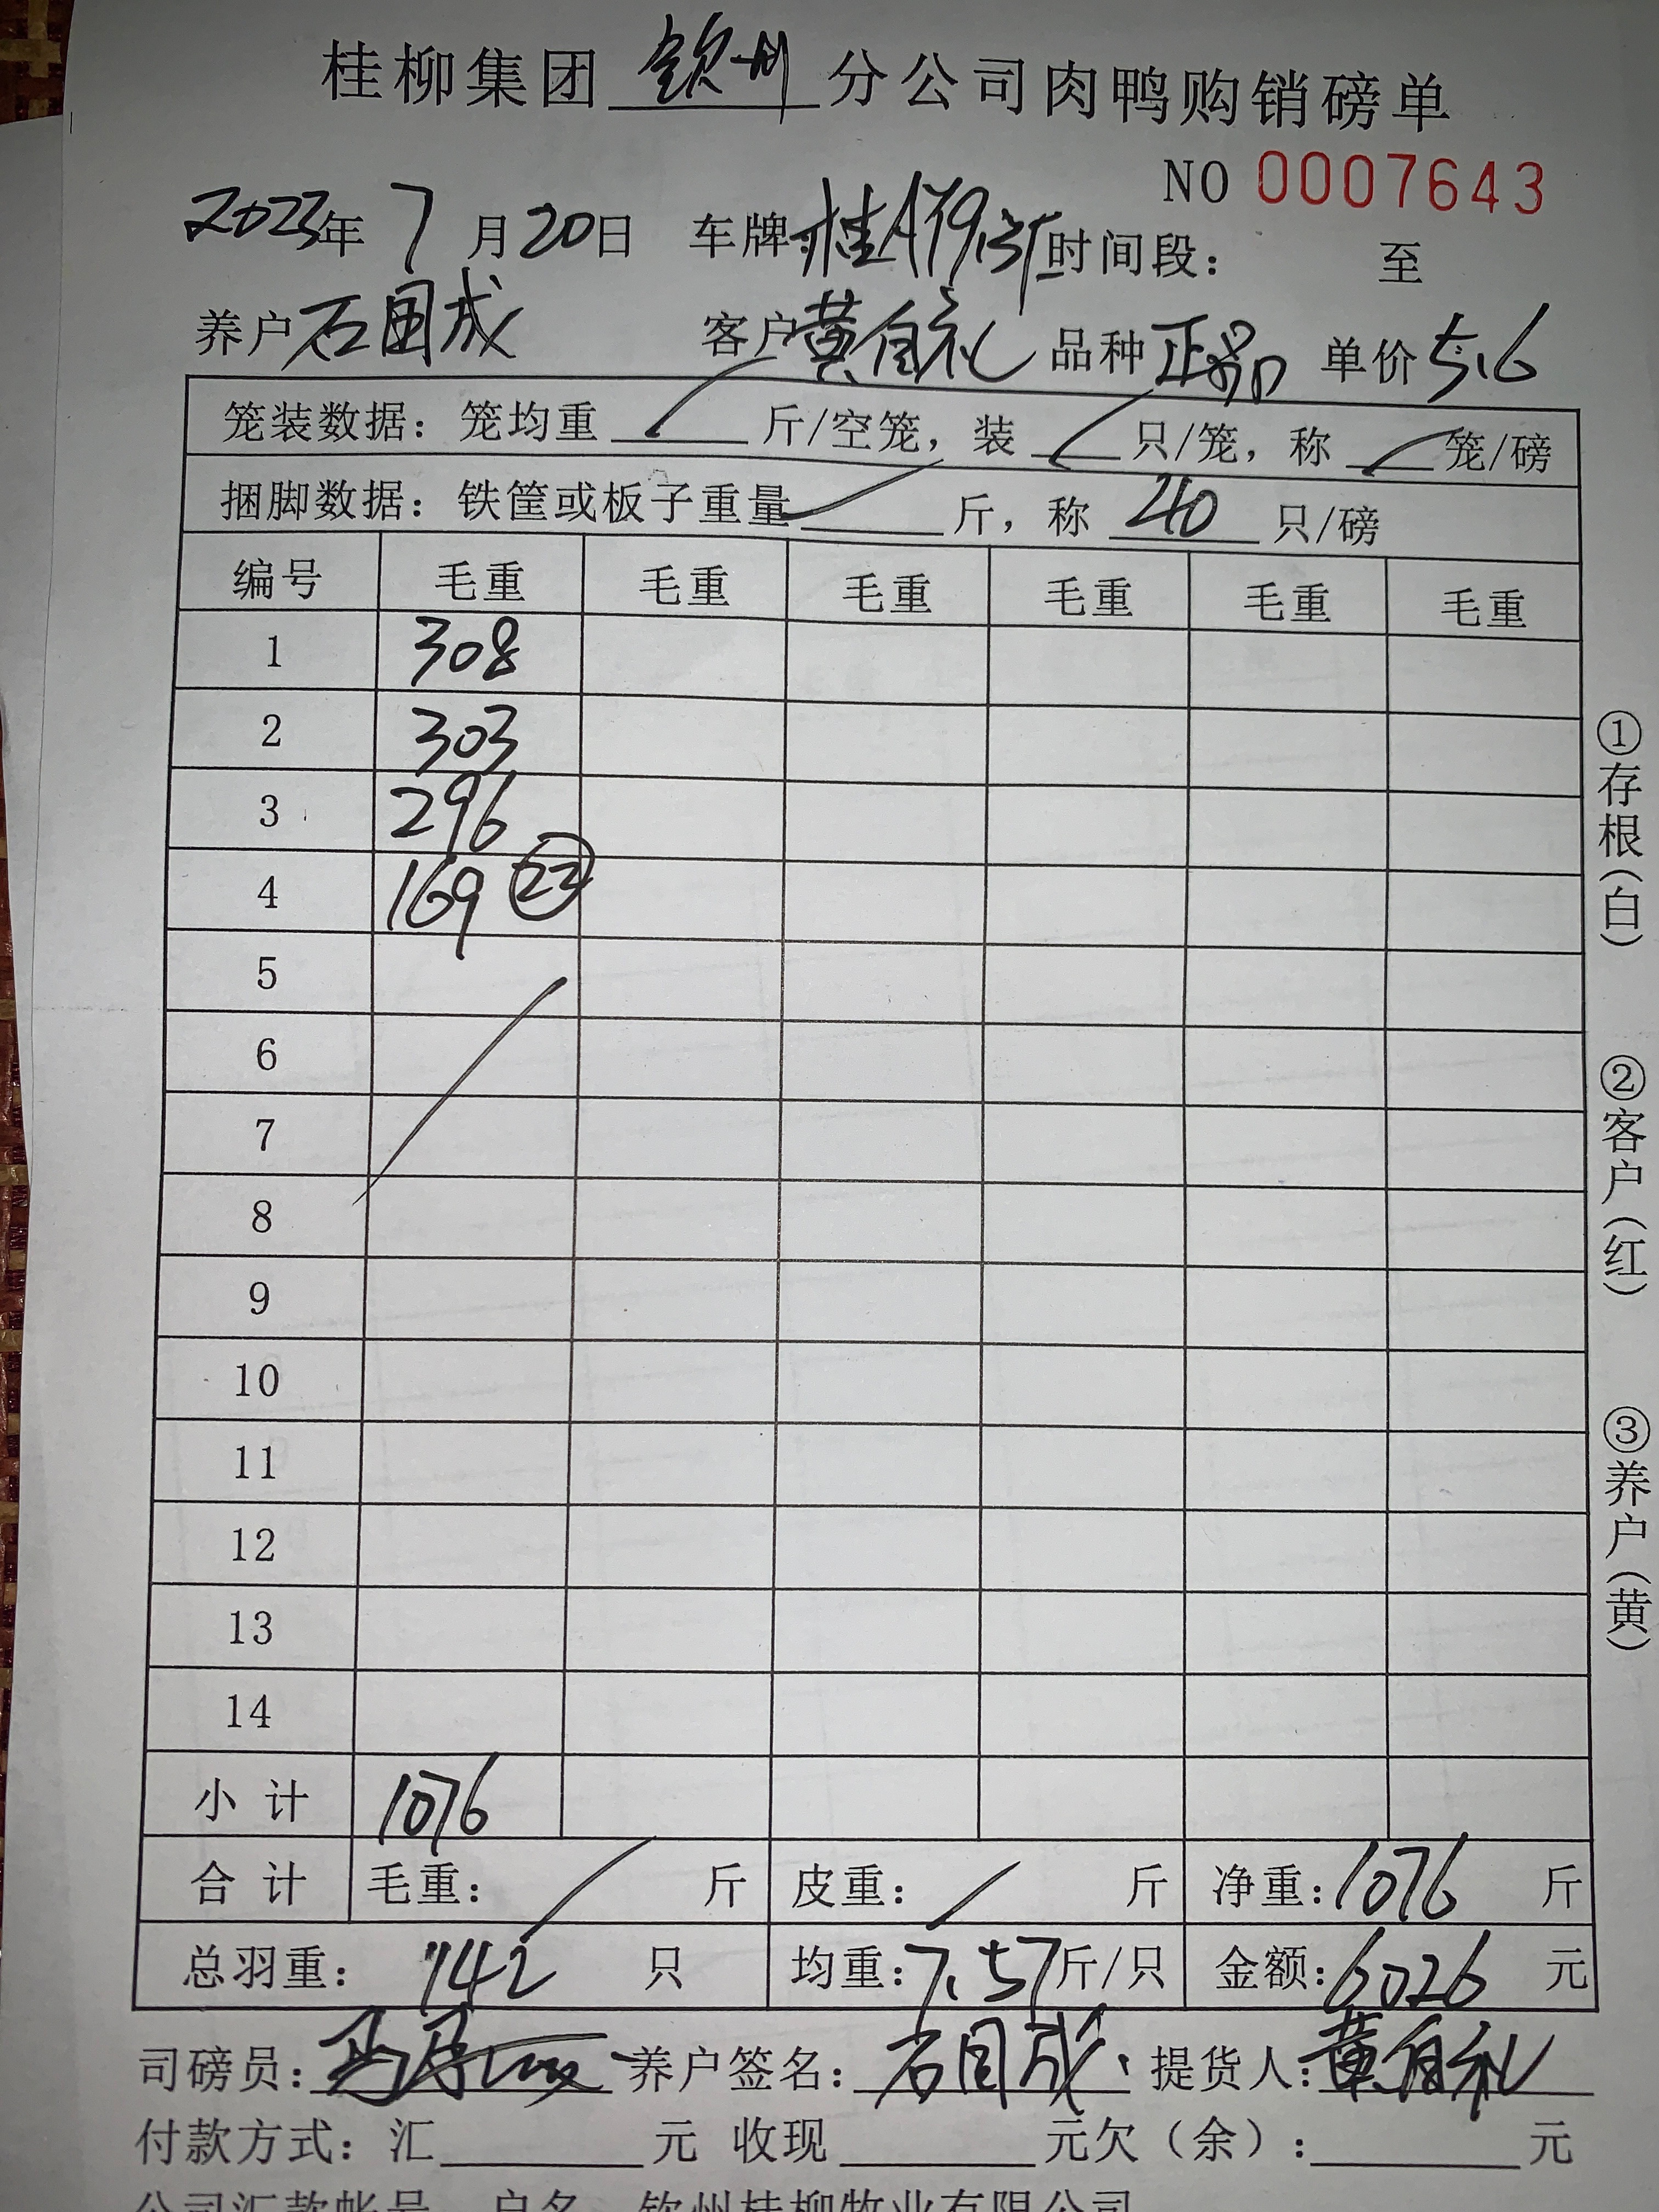 桂柳集团 钦州 分公司肉鸭购销磅单
NO 0007643
2023年 7 月 20 日 车牌: 时间段: 至
养户 石国成 客户 黄自礼 品种 正品 单价 5.6
笼装数据: 笼均重 斤/空笼, 装 只/笼, 称 笼/磅
捆脚数据: 铁筐或板子重量 斤, 称 40 只/磅
编号 毛重 毛重 毛重 毛重 毛重 毛重
1 308
2 303
3 296
4 169 22
5
6
7
8
9
10
11
12
13
14
小计 1076
合计 毛重: 斤 皮重: 斤 净重: 1076 斤
总羽重: 142 只 均重: 7.57 斤/只 金额: 6026 元
司磅员: 养户签名: 石国成 提货人: 黄自礼
付款方式: 汇 元 收现 元欠(余): 元
公司汇款帐号 户名 钦州桂柳牧业有限公司
①存根(白)
②客户(红)
③养户(黄)